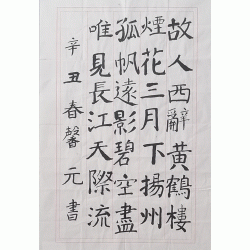 故人西辭黃鶴樓
煙花三月下揚州
孤帆遠影碧空盡
唯見長江天際流
辛丑春馨元書